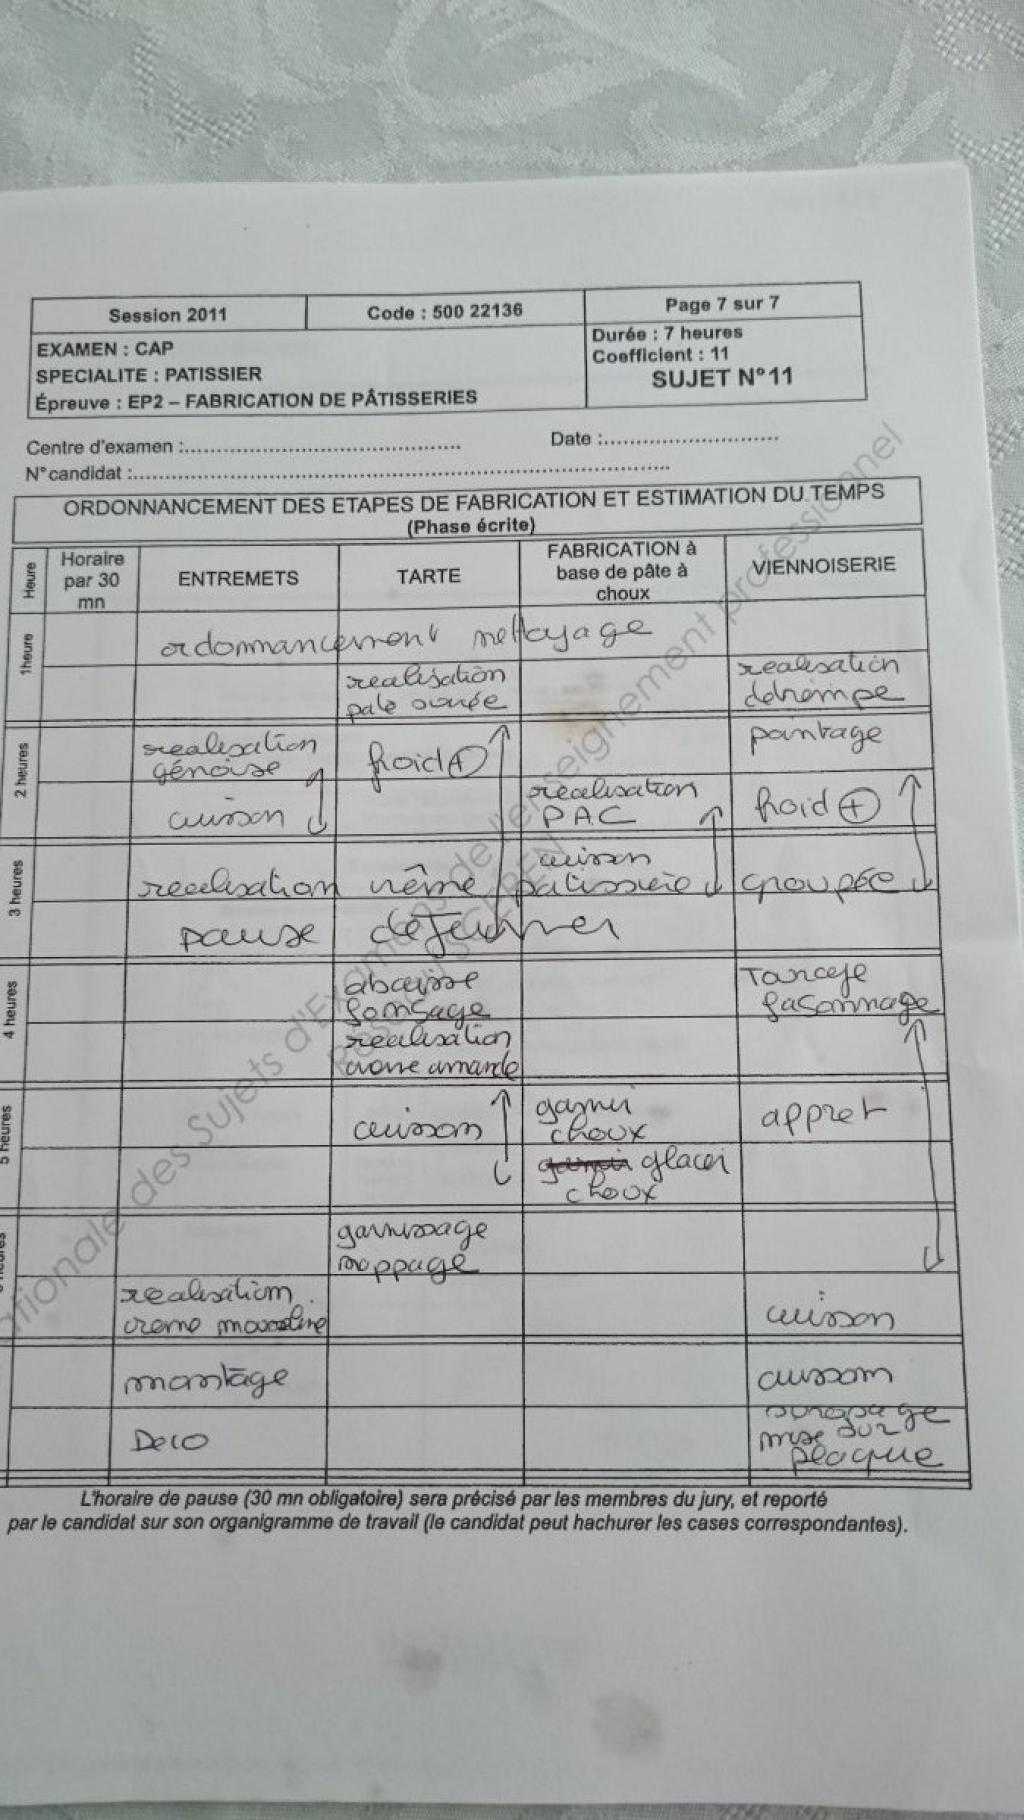 Session 2011
Code : 500 22136
Page 7 sur 7
EXAMEN : CAP
SPECIALITE : PATISSIER
Épreuve : EP2 – FABRICATION DE PÂTISSERIES
Durée : 7 heures
Coefficient : 11
SUJET N°11
Centre d'examen :
Date :
N°candidat :
ORDONNANCEMENT DES ETAPES DE FABRICATION ET ESTIMATION DU TEMPS
(Phase écrite)
Heure
Horaire
par 30
mn
ENTREMETS
TARTE
FABRICATION à
base de pâte à
choux
VIENNOISERIE
1heure
ordonnancement nettoyage
realisation
pate sucrée
realisation
detrempe
2 heures
realisation
génoise
froid +
pointage
cuisson
realisation
PAC
froid +
3 heures
cuisson
realisation crême patissière groupée
pause dejeuner
4 heures
abaisse
fonsage
Tourage
fasonnage
realisation
creme amande
5 heures
cuisson
garnir
choux
appret
glacer
choux
garnissage
nappage
realisation
creme mousseline
cuisson
montage
cuisson
Deco
mise sur
plaque
L'horaire de pause (30 mn obligatoire) sera précisé par les membres du jury, et reporté
par le candidat sur son organigramme de travail (le candidat peut hachurer les cases correspondantes).
ationale des Sujets d'Examens de l'enseignement professionnel
Réseau SCEREN